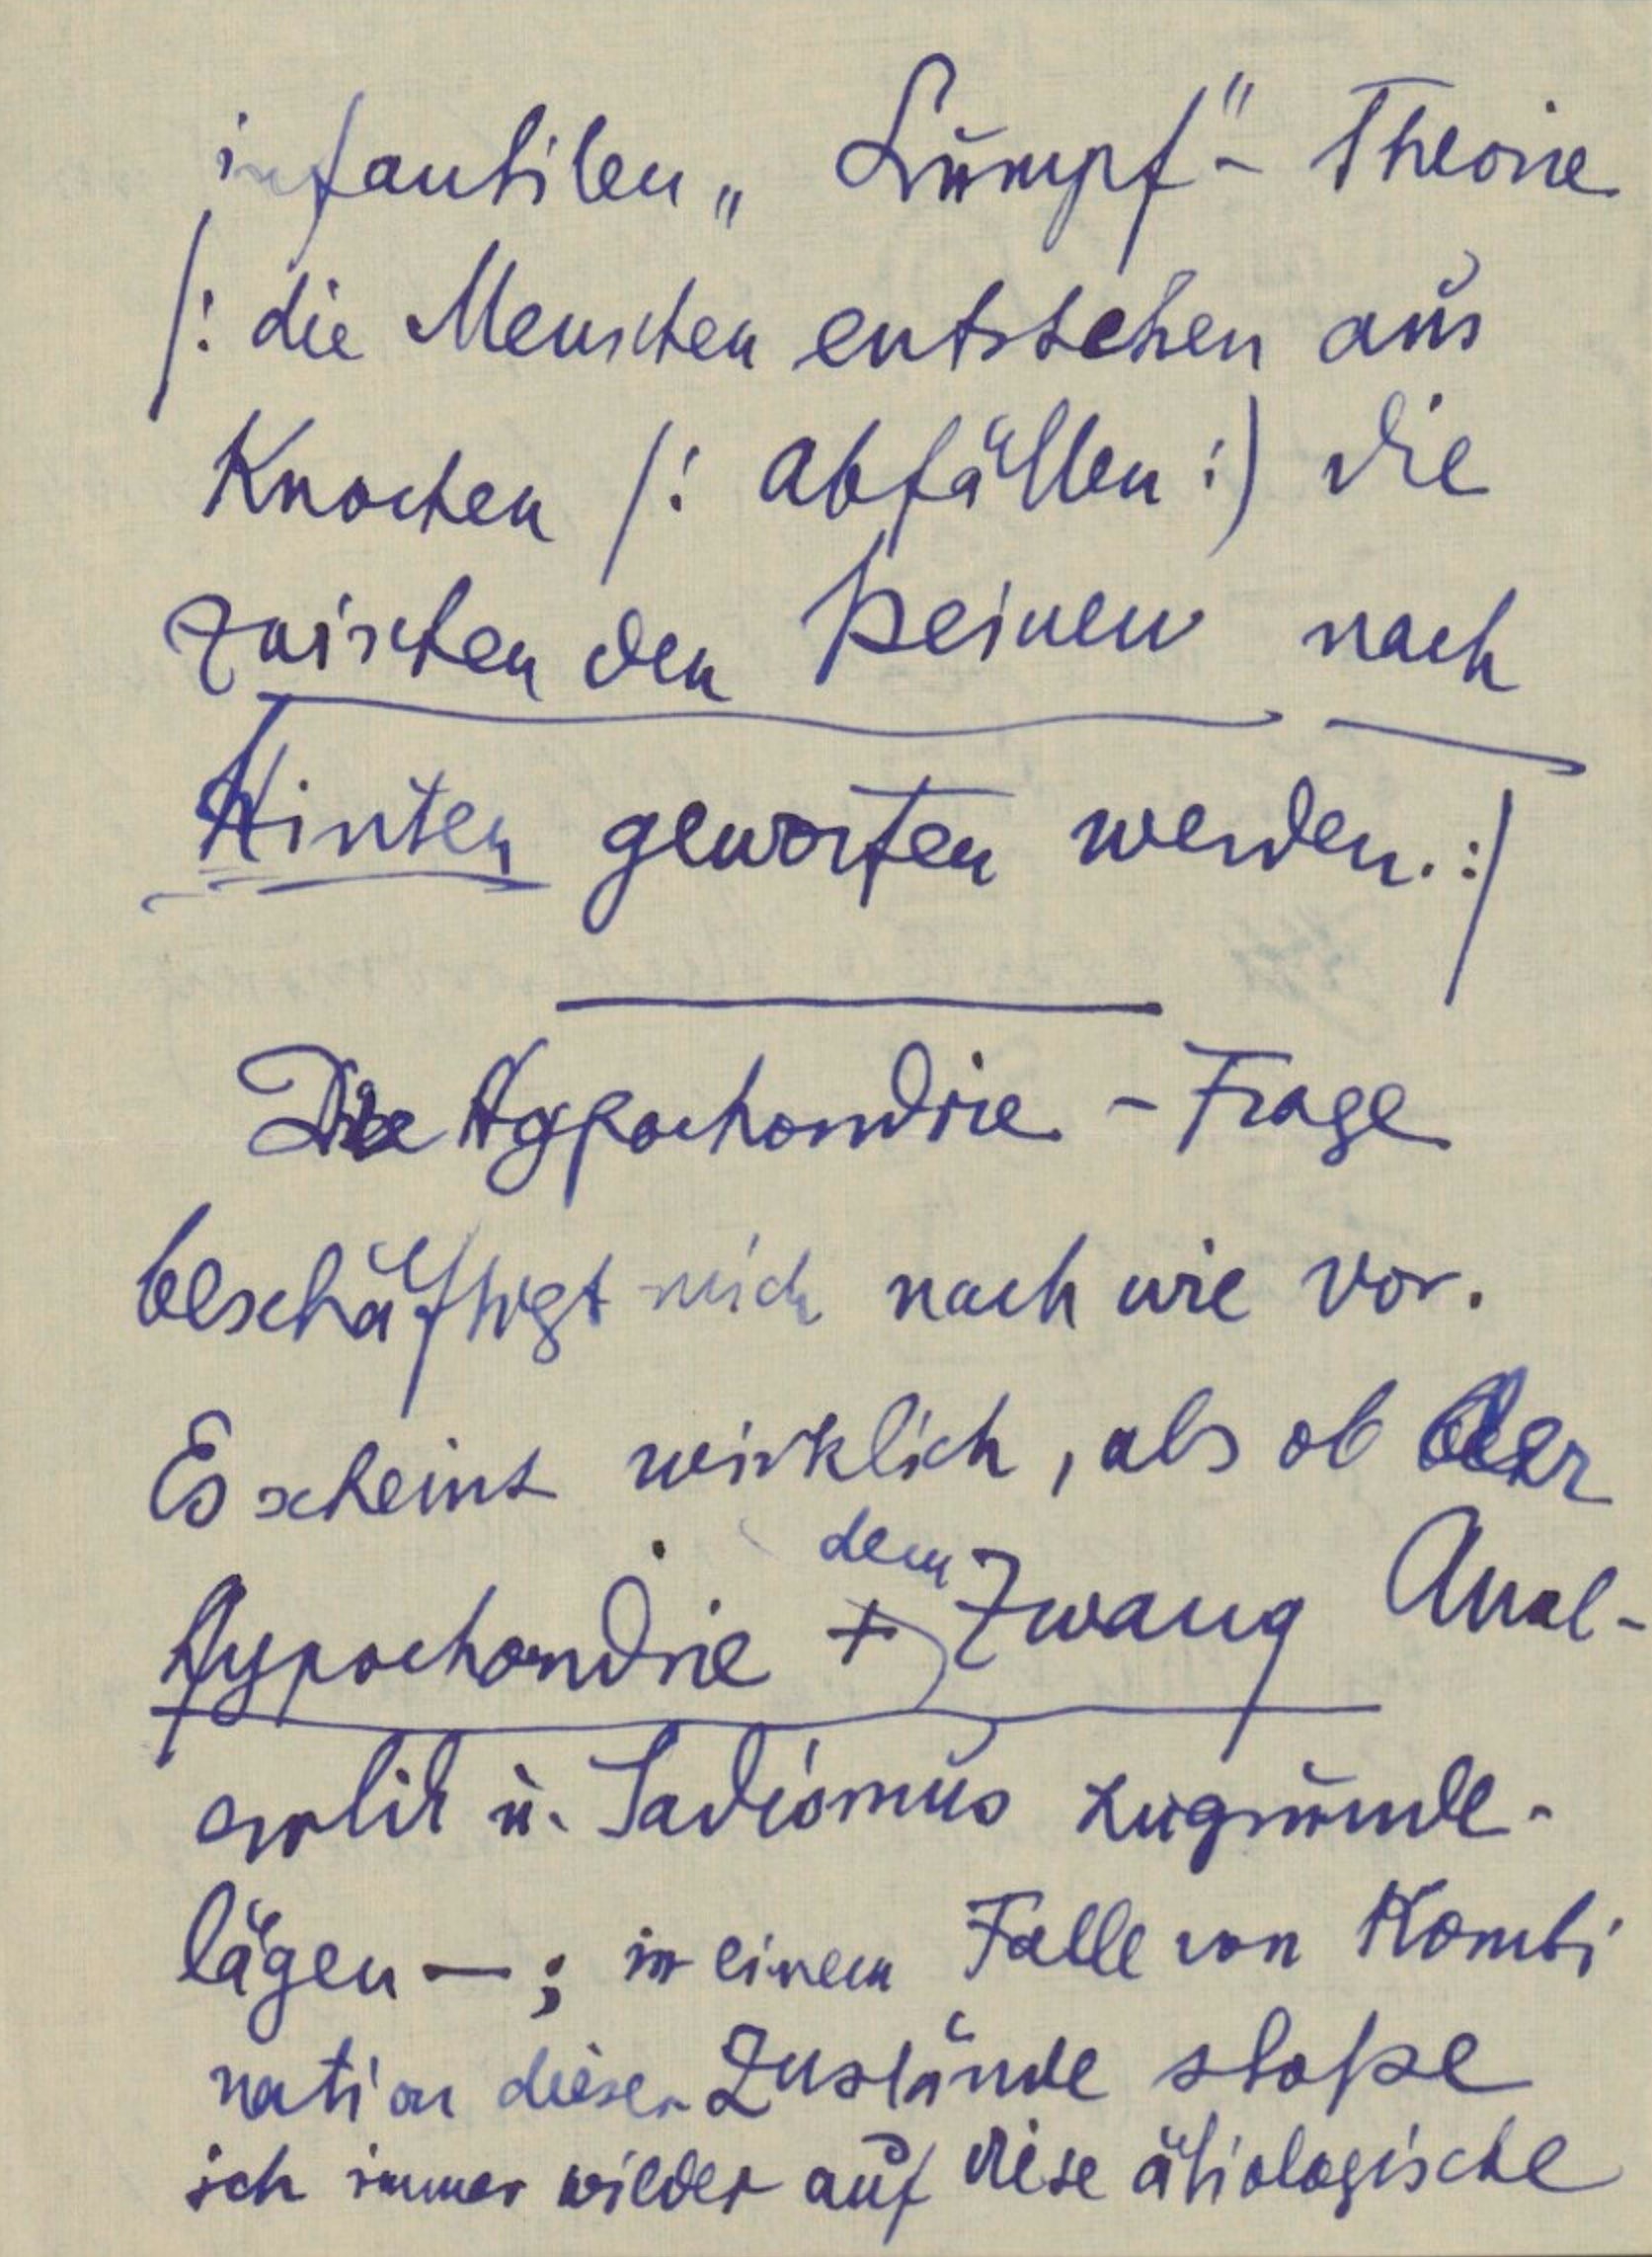 infantilen „Lumpf"-Theorie
/: die Menschen entstehen aus
Knochen /: abfällen :) die
zwischen den Beinen nach
Hinten geworfen werden. :/
Die Hypochondrie - Frage
beschäftigt mich nach wie vor.
Es scheint wirklich, als ob der
dem
Hypochondrie + Zwang Anal-
erotik u. Sadismus zugrunde-
lägen —; in einem Falle von Kombi
nation dieser Zustände stoße
ich immer wieder auf diese ätiologische